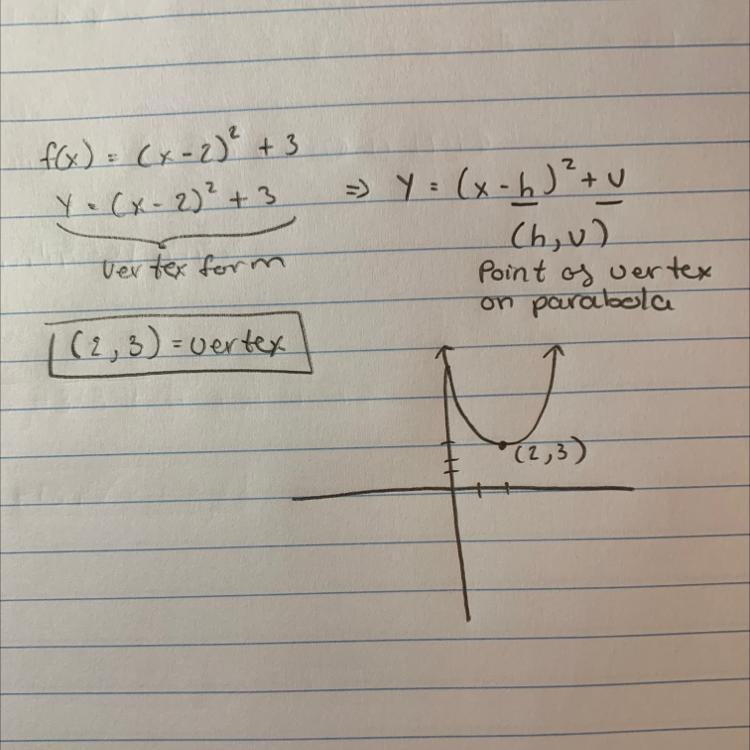 f(x) = (x-2)² + 3
Y = (x-2)² + 3 ⇒ Y = (x-h)² + v
vertex form
(h,v)
Point of vertex
on parabola
(2,3) = vertex
(2,3)